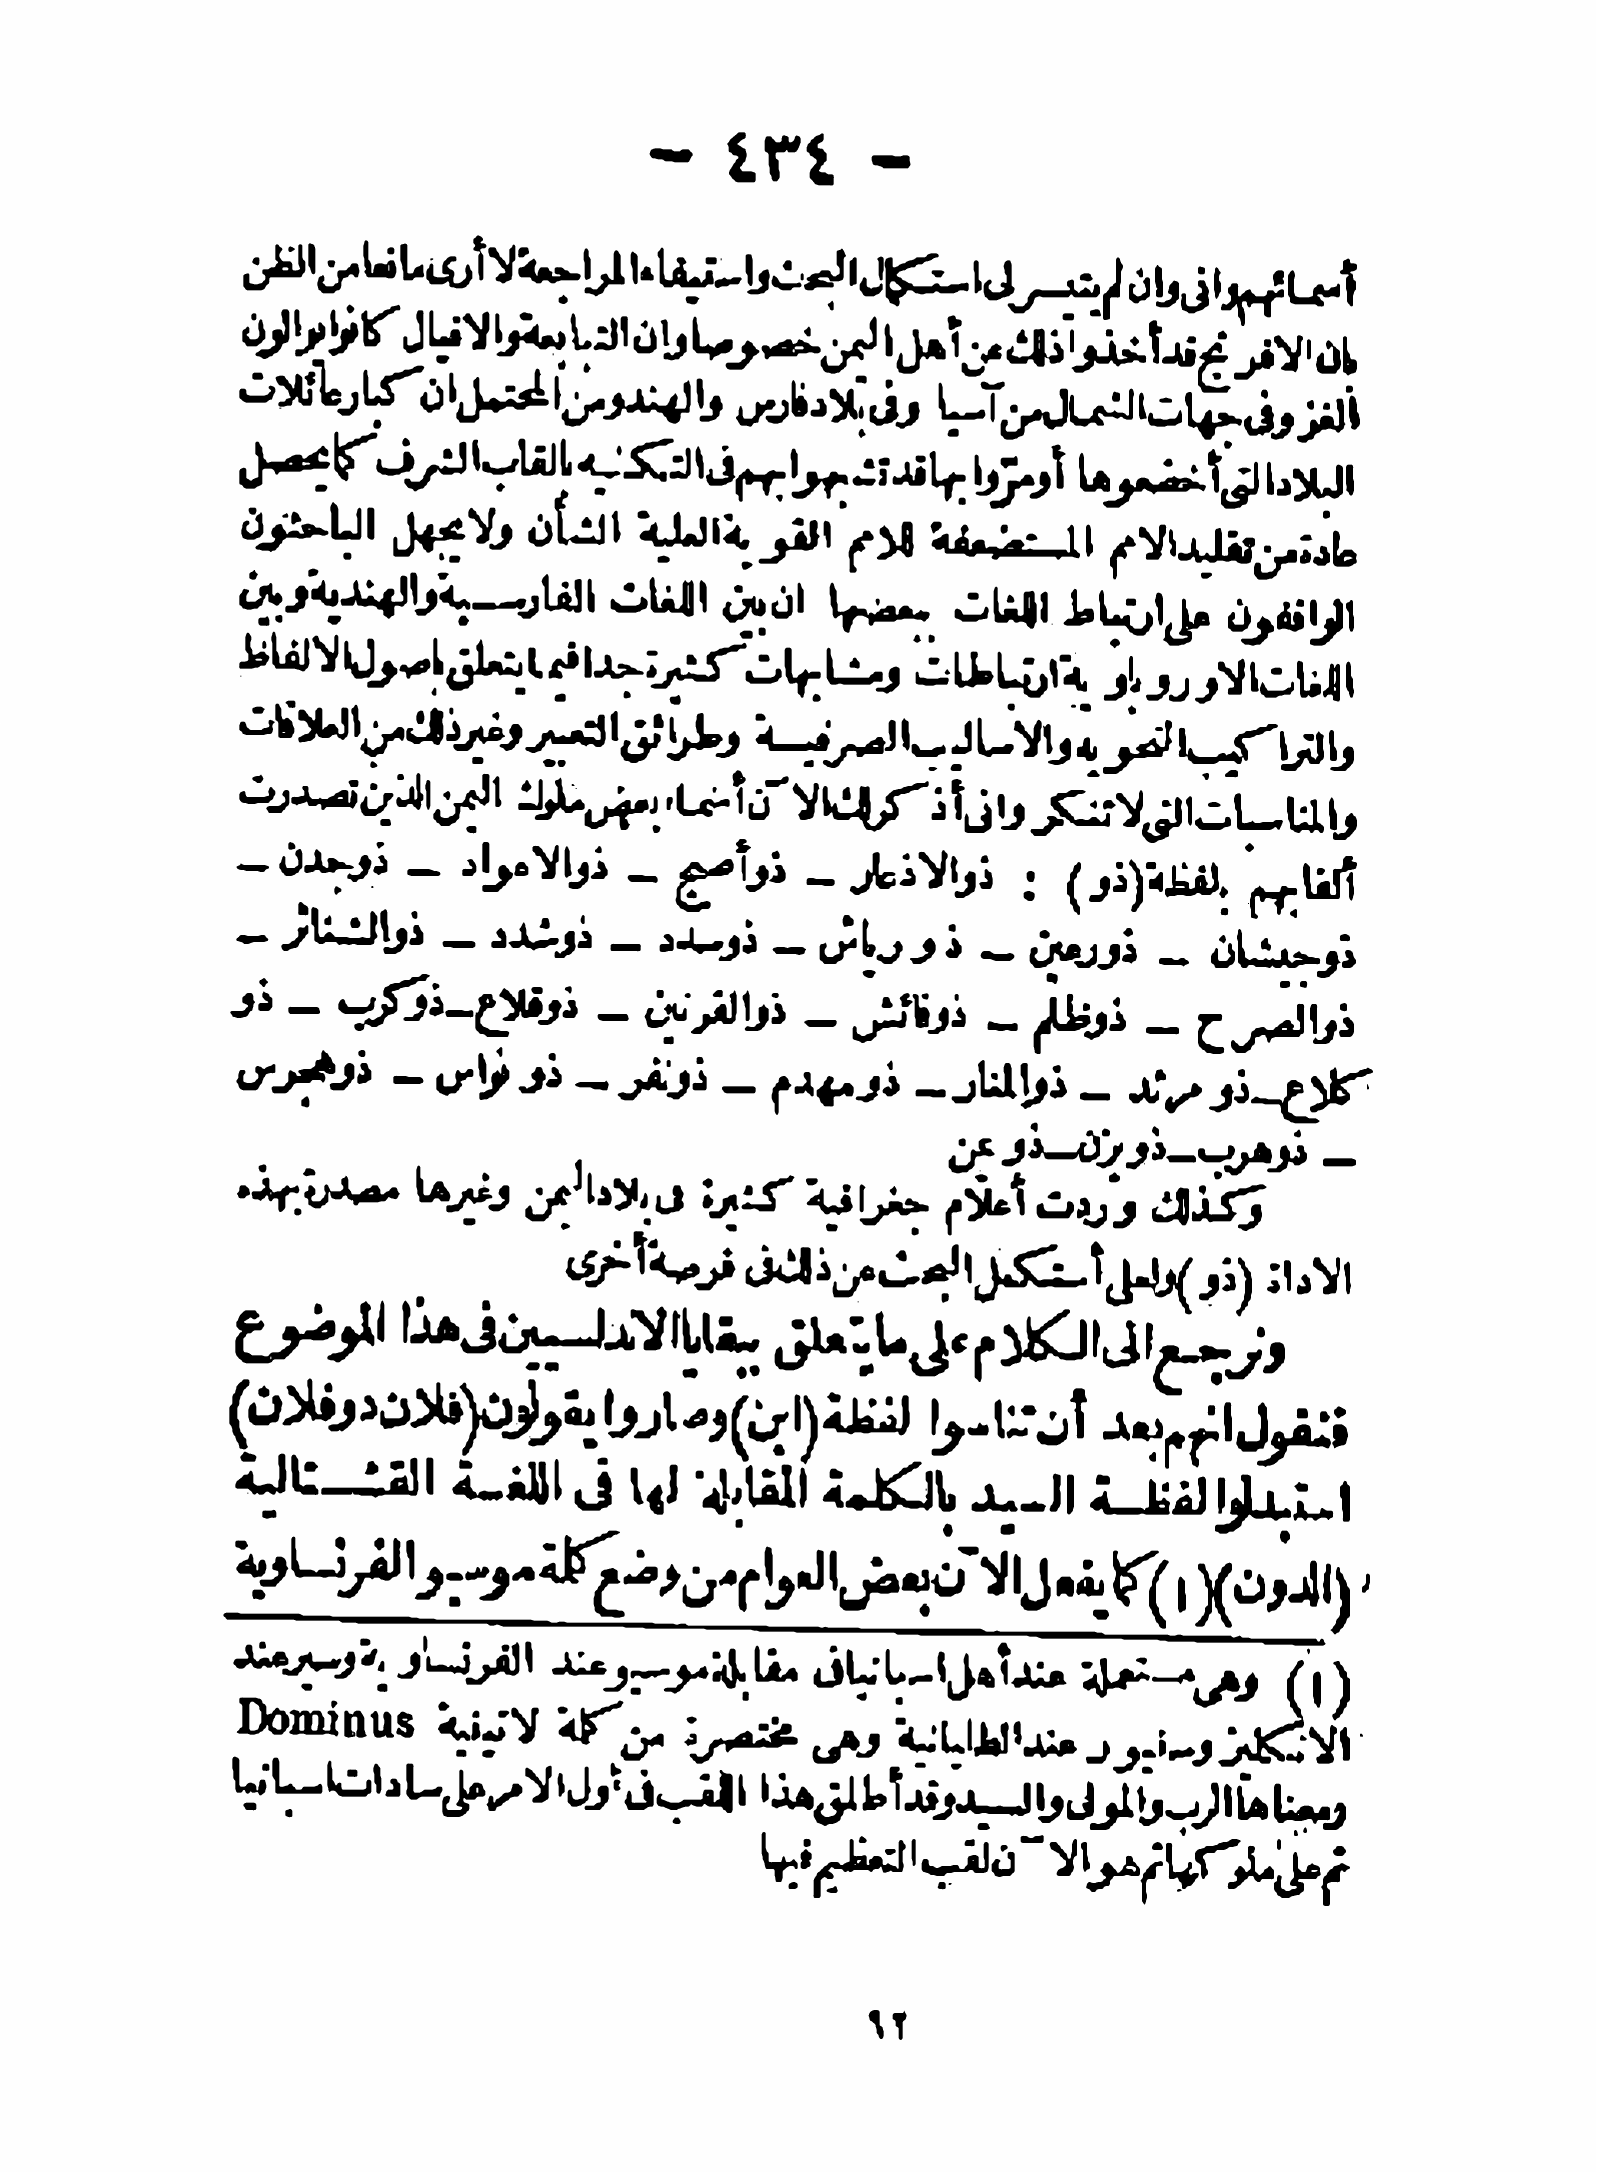 — ٤٣٤ —
أسمائهم وانى وان لم يتيسر لى استكمال البحث واستيفاء المراجعة لا أرى مانعا من الظن
بان الافرنج قد أخذوا ذلك عن أهل اليمن خصوصا وان التبابعة والاقيال كانوا يوالون
الغز وفى جهات الشمال من آسيا وفى بلاد فارس والهند ومن المحتمل ان كبار عائلات
البلاد التى أخضعوها أو مرّوا بها قد تشبهوا بهم فى التكنيه بالقاب الشرف كما يحصل
عادة من تقليد الامم المستضعفة للامم القوية العلية الشأن ولا يجهل الباحثون
الواقفون على ارتباط اللغات ببعضها ان بين اللغات الفارسية والهندية وبين
اللغات الاوروباوية ارتباطات ومشابهات كثيرة جدا فيما يتعلق باصول الالفاظ
والتراكيب النحويه والاساليب الصرفية وطرائق التعبير وغير ذلك من العلاقات
والمناسبات التى لا تنكر وانى أذكر لك الآن أسماء بعض ملوك اليمن الذين تصدرت
ألقابهم بلفظة (ذو) : ذوالاذعار — ذوأصبح — ذوالاعواد — ذوجدن —
ذوجيشان — ذورعين — ذو رياش — ذوسدد — ذوشدد — ذوالشناتر —
ذوالصرح — ذوظلم — ذوفائش — ذوالقرنين — ذوقلاع — ذوكرب — ذو
كلاع — ذو مرثد — ذوالمنار — ذومهدم — ذونفر — ذو نواس — ذوهجرس
— ذوهرب — ذويزن — ذو عن
وكذلك وردت أعلام جغرافية كثيرة فى بلاد اليمن وغيرها مصدرة بهذه
الاداة (ذو) ولعلى أستكمل البحث عن ذلك فى فرصة أخرى
ونرجع الى الكلام على ما يتعلق ببقايا الاندلسيين فى هذا الموضوع
فنقول انهم بعد أن تناسوا لفظة (ابن) وصاروا يقولون (فلان دو فلان)
استبدلوا لفظة السيد بالكلمة المقابلة لها فى اللغة القشتالية
(الدون) (١) كما يفعل الآن بعض العوام من وضع كلمة موسيو الفرنساوية
(١) وهى مستعملة عند أهل اسبانيا فى مقابلة موسيو عند الفرنساوية وسير عند
الانكليز وسنيور عند الطليانية وهى مختصرة من كلمة لاتينية Dominus
ومعناها الرب والمولى والسيد وقد أطلق هذا اللقب فى أول الامر على سادات اسبانيا
ثم على ملوكها ثم هو الآن لقب التعظيم فيها
٩٢